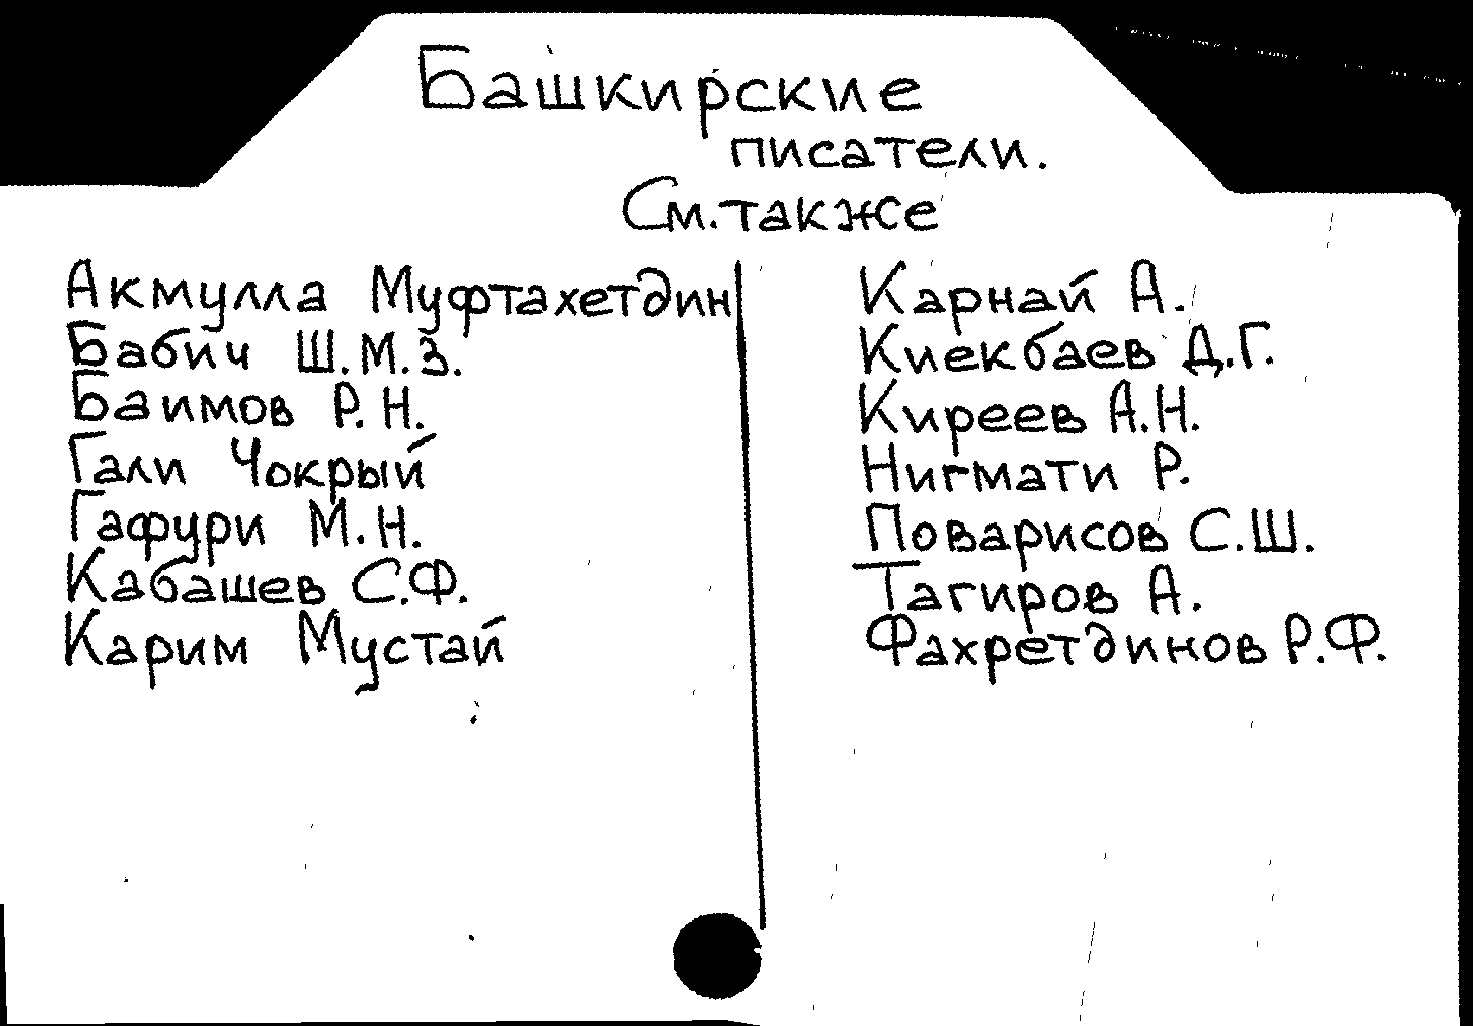 Башкирские
писатели.
См. также
Акмулла Муфтахетдин
Бабич Ш.М.З.
Баимов Р.Н.
Гали Чокрый
Гафури М.Н.
Кабашев С.Ф.
Карим Мустай
Карнай А.
Киекбаев Д.Г.
Киреев А.Н.
Нигмати Р.
Поварисов С.Ш.
Тагиров А.
Фахретдинов Р.Ф.